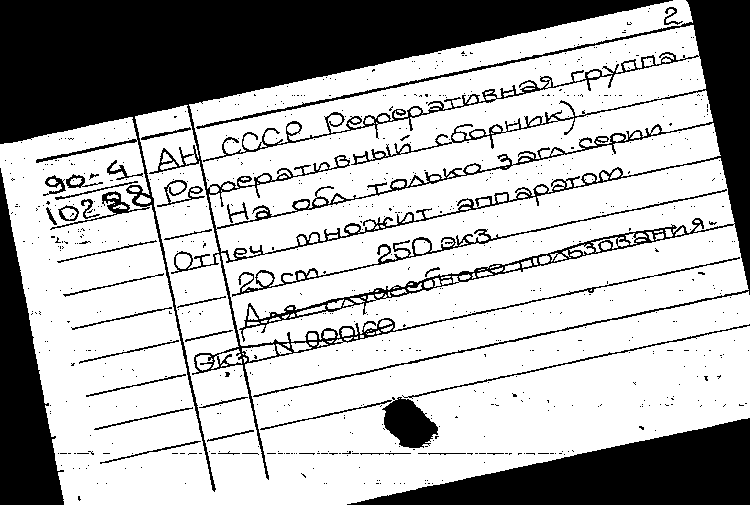 2
90-4 АН СССР. Реферативная группа.
10288 Реферативный сборник).
На обл. только загл. серии.
Отпеч. множит. аппаратом.
20 cm. 250 экз.
Для служебного пользования.
Экз. N 000160.